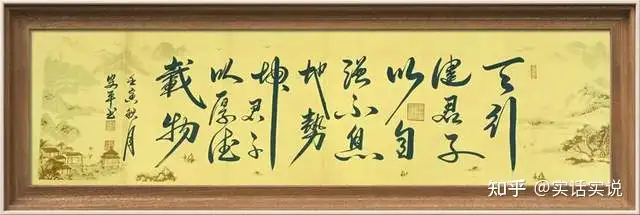 天行
健君子
以自
强不息
地勢
坤君子
以厚德
載物
壬寅秋月
平书
知乎 @实话实说